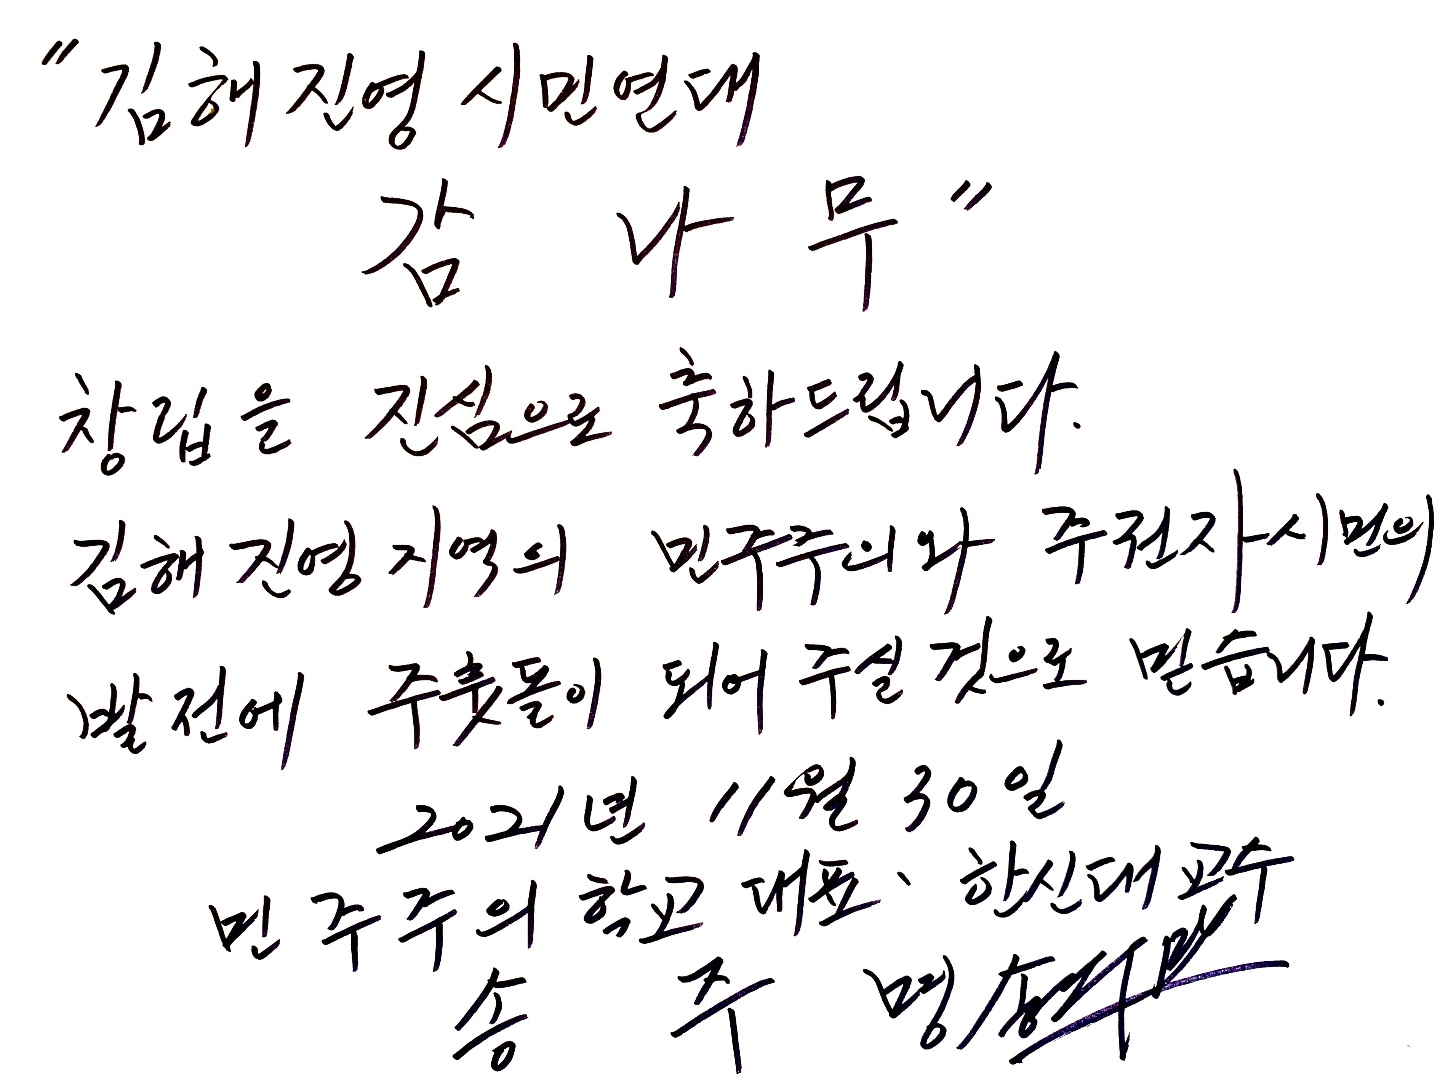 "김해 진영 시민연대
감 나 무"
창립을 진심으로 축하드립니다.
김해 진영 지역의 민주주의와 주권자 시민의
발전에 주춧돌이 되어 주실 것으로 믿습니다.
2021년 11월 30일
민주주의 학교 대표、한신대 교수
송 주 명